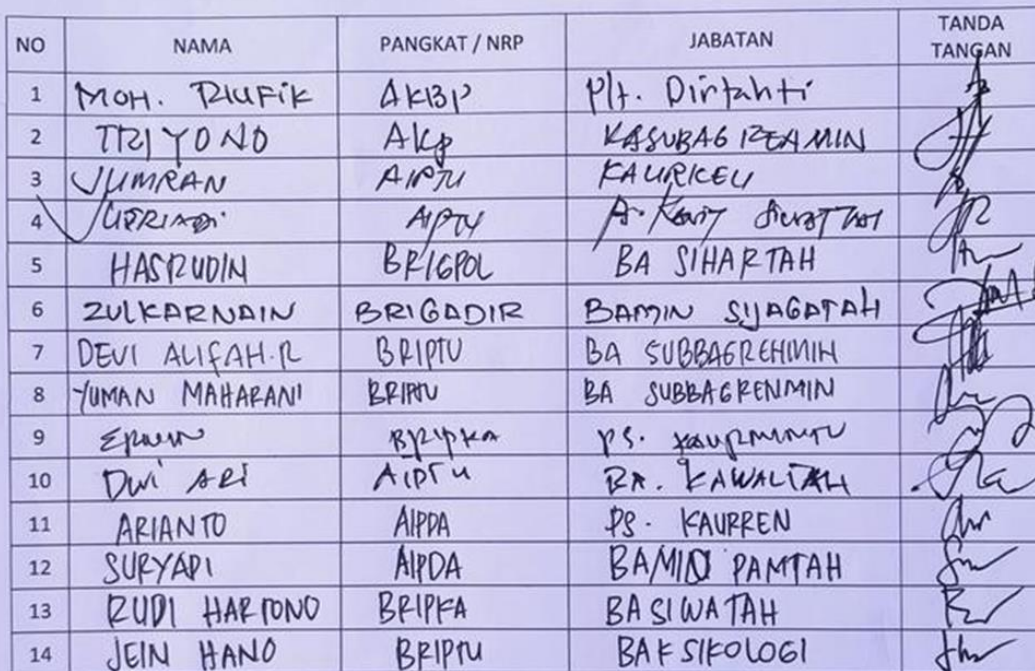 NO NAMA PANGKAT / NRP JABATAN TANDA TANGAN
1 MOH. TAUFIK AKBP Plt. Dirtahti
2 TRIYONO AKP KASUBAGRENMIN
3 JUMRAN AIPTU KAURKEU
4 AIPTU
5 HASRUDIN BRIGPOL BA SIHARTAH
6 ZULKARNAIN BRIGADIR BAMIN SIJAGATAH
7 DEVI ALIFAH.R BRIPTU BA SUBBAGRENMIN
8 YUMAN MAHARANI BRIPTU BA SUBBAGRENMIN
9 BRIPKA PS. KAURMINTU
10 DWI ARI AIPTU BA. KAWALTAH
11 ARIANTO AIPDA PS. KAURREN
12 SURYADI AIPDA BAMIN PAMTAH
13 RUDI HARTONO BRIPKA BASIWATAH
14 JEIN HANO BRIPTU BAK SIKOLOGI